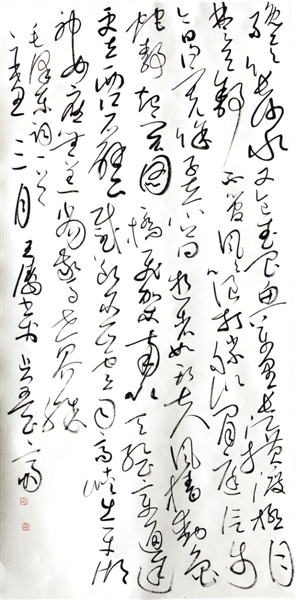 才饮长沙水又食武昌鱼万里长江横渡极目
楚天舒不管风吹浪打胜似闲庭信步
今日得宽余子在川上曰逝者如斯夫风樯动龟
蛇静起宏图一桥飞架南北天堑变通途
更立西江石壁截断巫山云雨高峡出平湖
神女应无恙当惊世界殊
毛泽东词一首
三月 王 书于